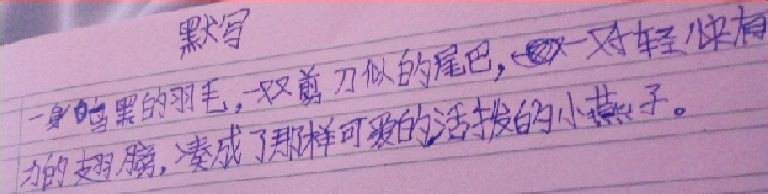 默写
一身乌黑的羽毛，一双剪刀似的尾巴，一对轻快有
力的翅膀，凑成了那样可爱的活拨的小燕子。